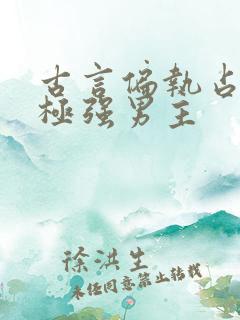 古言偏执占
極强男主
徐洪生
未经同意禁止转载